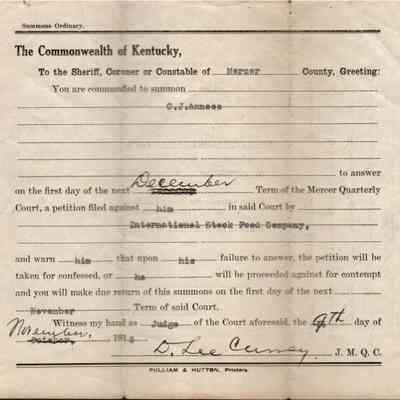 Summons Ordinary.
The Commonwealth of Kentucky,
To the Sheriff, Coroner or Constable of Mercer County, Greeting:
You are commanded to summon
C.J.Anness
to answer
on the first day of the next December Term of the Mercer Quarterly
Court, a petition filed against him in said Court by
International Stock Food Company,
and warn him that upon his failure to answer, the petition will be
taken for confessed, or he will be proceeded against for contempt
and you will make due return of this summons on the first day of the next
November Term of said Court.
Witness my hand as Judge of the Court aforesaid, the 9th day of
November, October, 191
D. Lee Curry J. M. Q. C.
PULLIAM & HUTTON, Printers